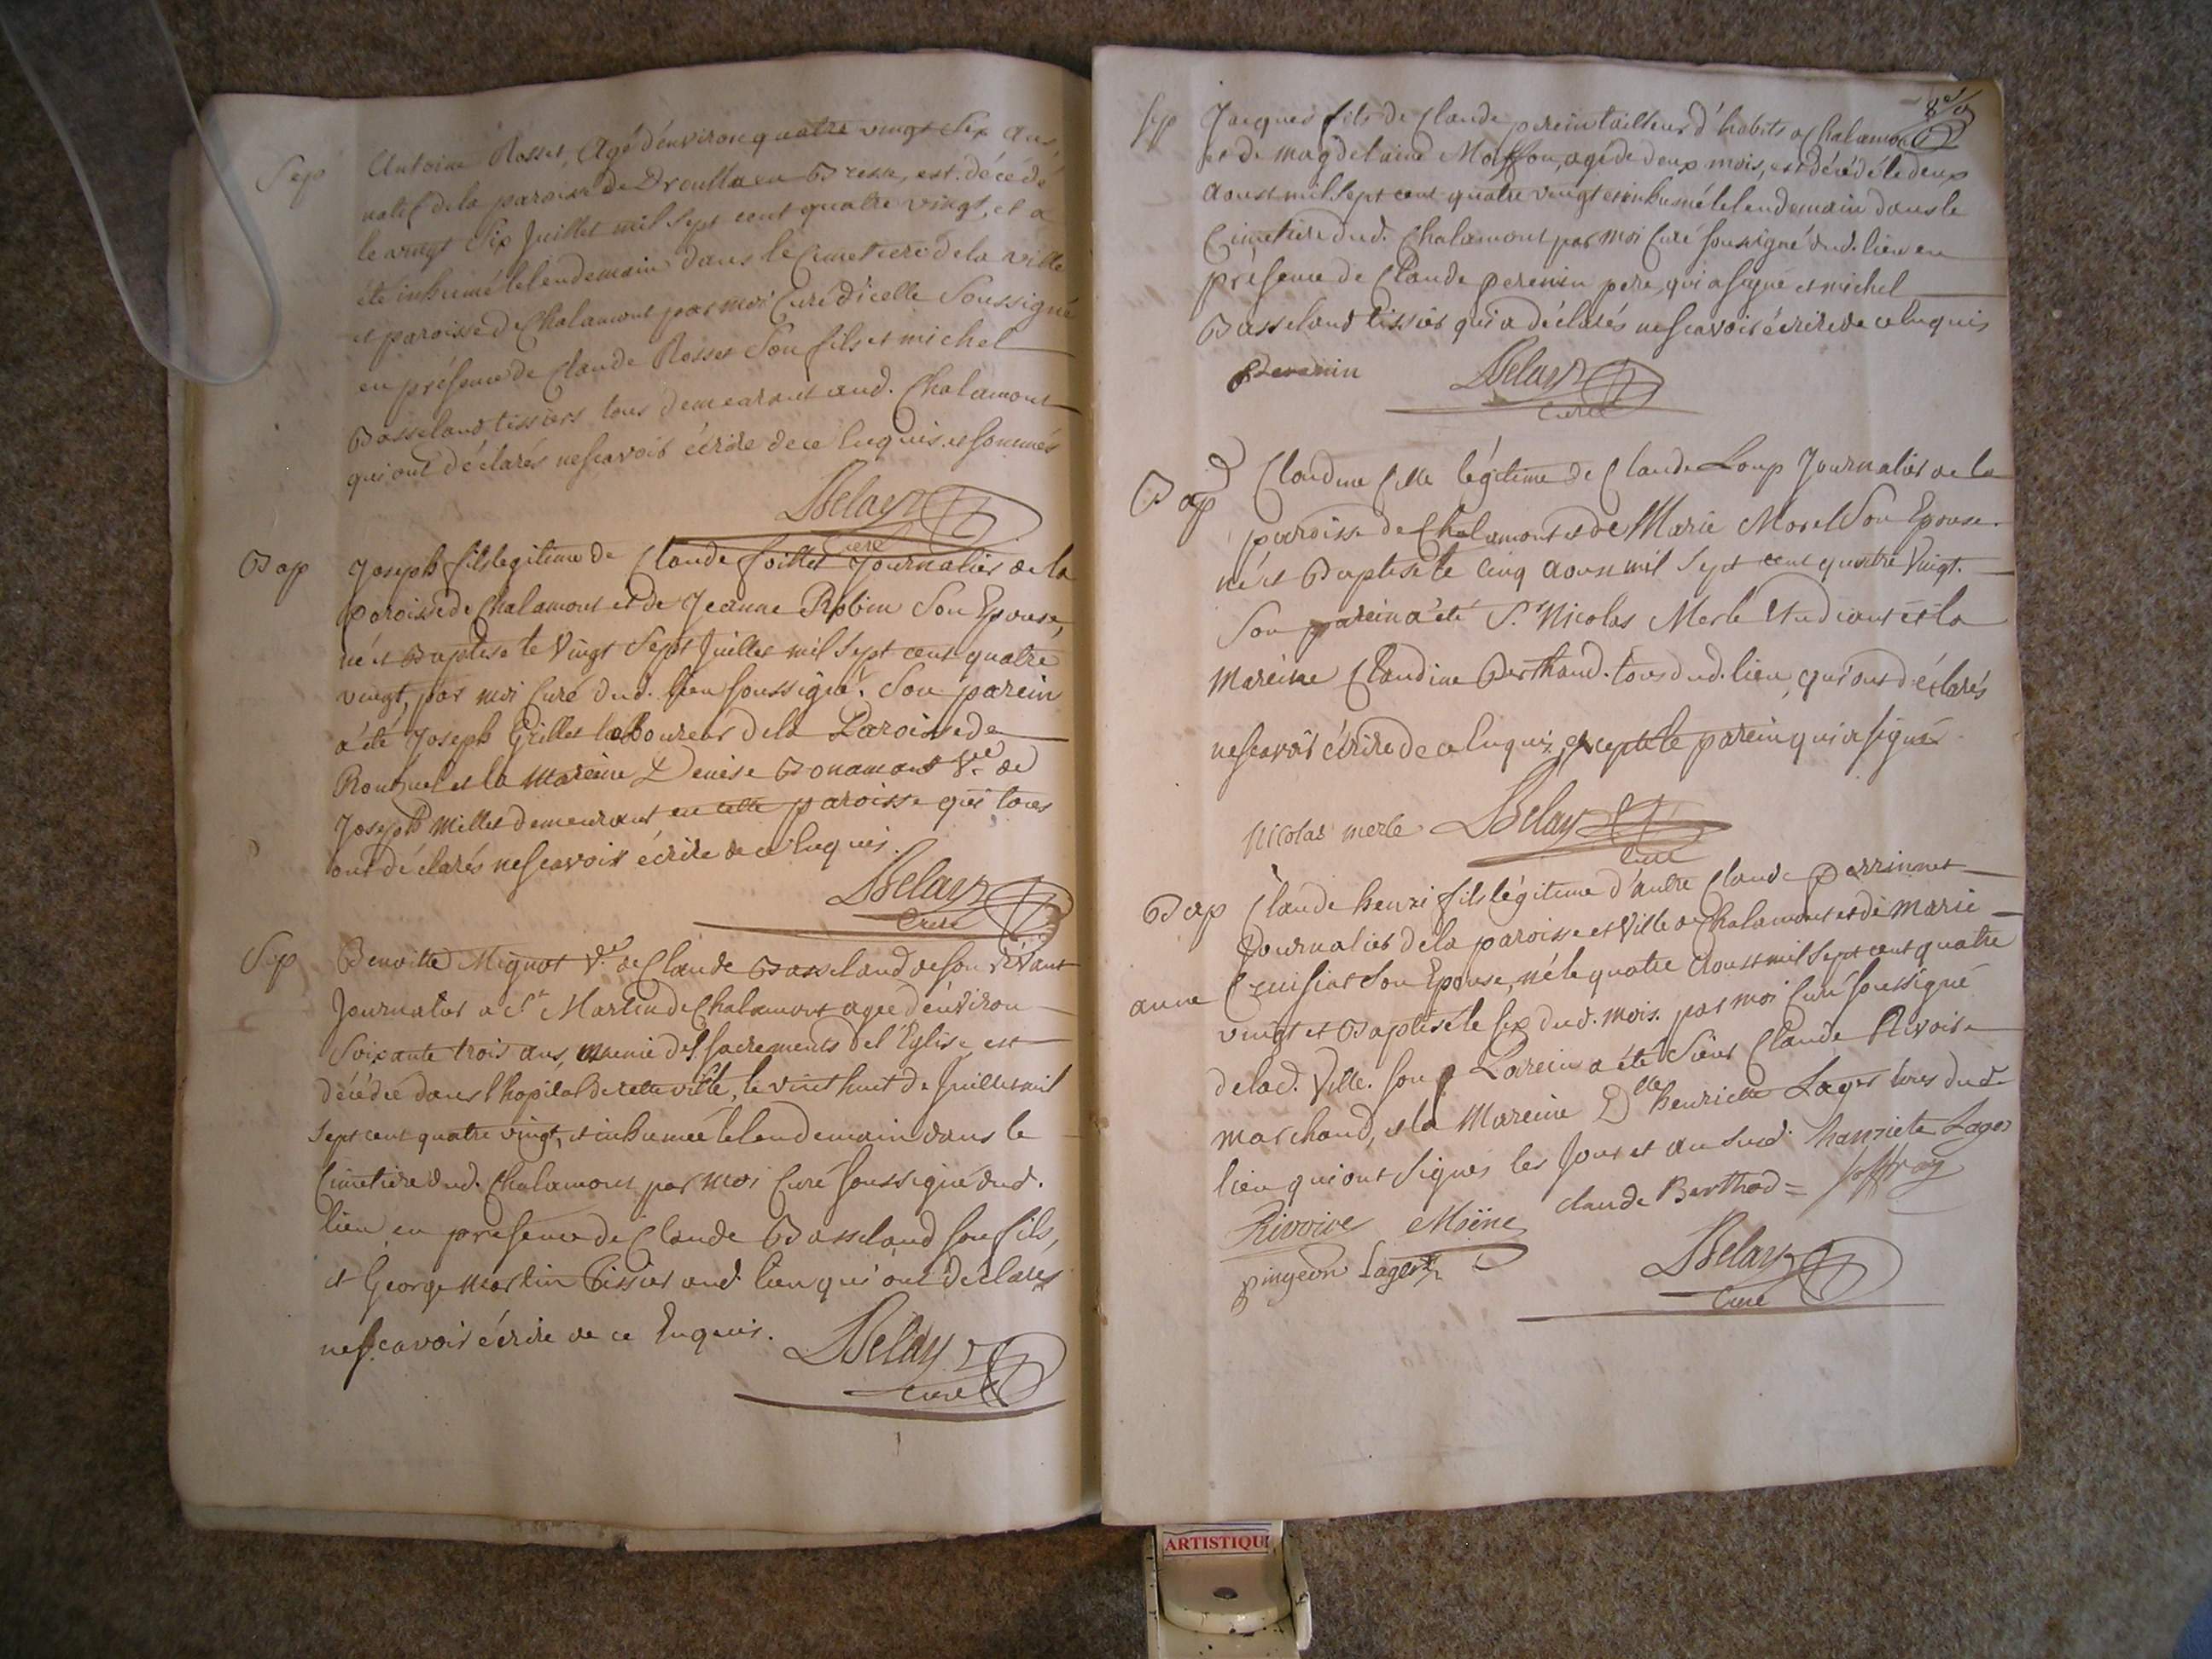 Sep
Antoine Rosset, Agé d'environ quatre vingt Six ans,
natif de la paroisse de en Bresse, est décédé
le vingt Six Juillet mil Sept cent quatre vingt, et a
été inhumé le lendemain dans le Cimetiere de la ville
et paroisse de Chalamont par moi Curé d'icelle Soussigné
en présence de Claude Rosset Son fils et michel
Basseland tissiers tous demeurant aud. Chalamont
qui ont déclarés ne scavoir écrire de ce Enquis et sommés
Delay
Curé
Bap
Joseph fils legitime de Claude foillet Journalier de la
paroisse de Chalamont et de Jeanne Robin Son Epouse,
né et Baptisé le Vingt Sept Juillet mil Sept cent quatre
vingt, par moi Curé dud. lieu soussigné. Son parein
a été Joseph Grillet laboureur de la Paroisse de
et la Mareine Denise Bonamour Ve. de
Joseph Millet demeurant en cette paroisse qui tous
ont déclarés ne scavoir écrire de ce Enquis.
Delay
Curé
Sep
Benoitte Mignot Ve. de Claude Basseland de son vivant
Journalier a St Martin de Chalamont agée d'environ
Soixante trois ans, munie des sacrements de l'Eglise est
décédée dans l'hopital de cette ville, le vint huit de Juillet mil
sept cent quatre vingt, et inhumée le lendemain dans le
Cimetiere dud. Chalamont par moi Curé soussigné dud.
lieu en presence de Claude Basseland son fils,
et George Martin Tissier aud. lieu qui ont déclarés
ne scavoir écrire de ce Enquis.
Delay
Curé
Sep
Jacques fils de Claude perein tailleur d'habits a Chalamont
et de magdelaine Moisson, agé de deux mois, est décédé le deux
aoust mil sept cent quatre vingt et inhumé le lendemain dans le
Cimetiere dud. Chalamont par moi Curé soussigné dud. lieu en
présence de Claude perenin pere, qui a signé et michel
Basseland tissier qui a déclarés ne scavoir écrire de ce Enquis
Perenin Delay
Curé
Bap
Claudine fille légitime de Claude Loup Journalier de la
paroisse de Chalamont et de Marie Morel Son Epouse.
né et Baptisé le Cinq aoust mil Sept cent quatre Vingt.
Son parein a été Sr. Nicolas Merle Etudiant et la
Mareine Claudine Berthaud. tous dud. lieu, qui ont déclarés
ne scavoir écrire de ce Enquis, excepté le parein qui a signé.
Nicolas merle Delay
Curé
Bap
Claude henri fils légitime d'autre Claude perrinnet
Journalier de la paroisse et Ville de Chalamont et de Marie
anne Cruisiat Son Epouse, né le quatre Aoust mil Sept cent quatre
vingt et Baptisé le six dud. mois. par moi Curé soussigné
de lad. Ville. son Parein a été Sieur Claude Rivoire
marchand, et la Mareine Dlle henriette Lager tous dud.
lieu qui ont Signés les Jour et an Susd. hanriete Lager
Rivoire Moine Claude Berthod = Joffray
pingeon Lager
Delay
Curé
ARTISTIQU